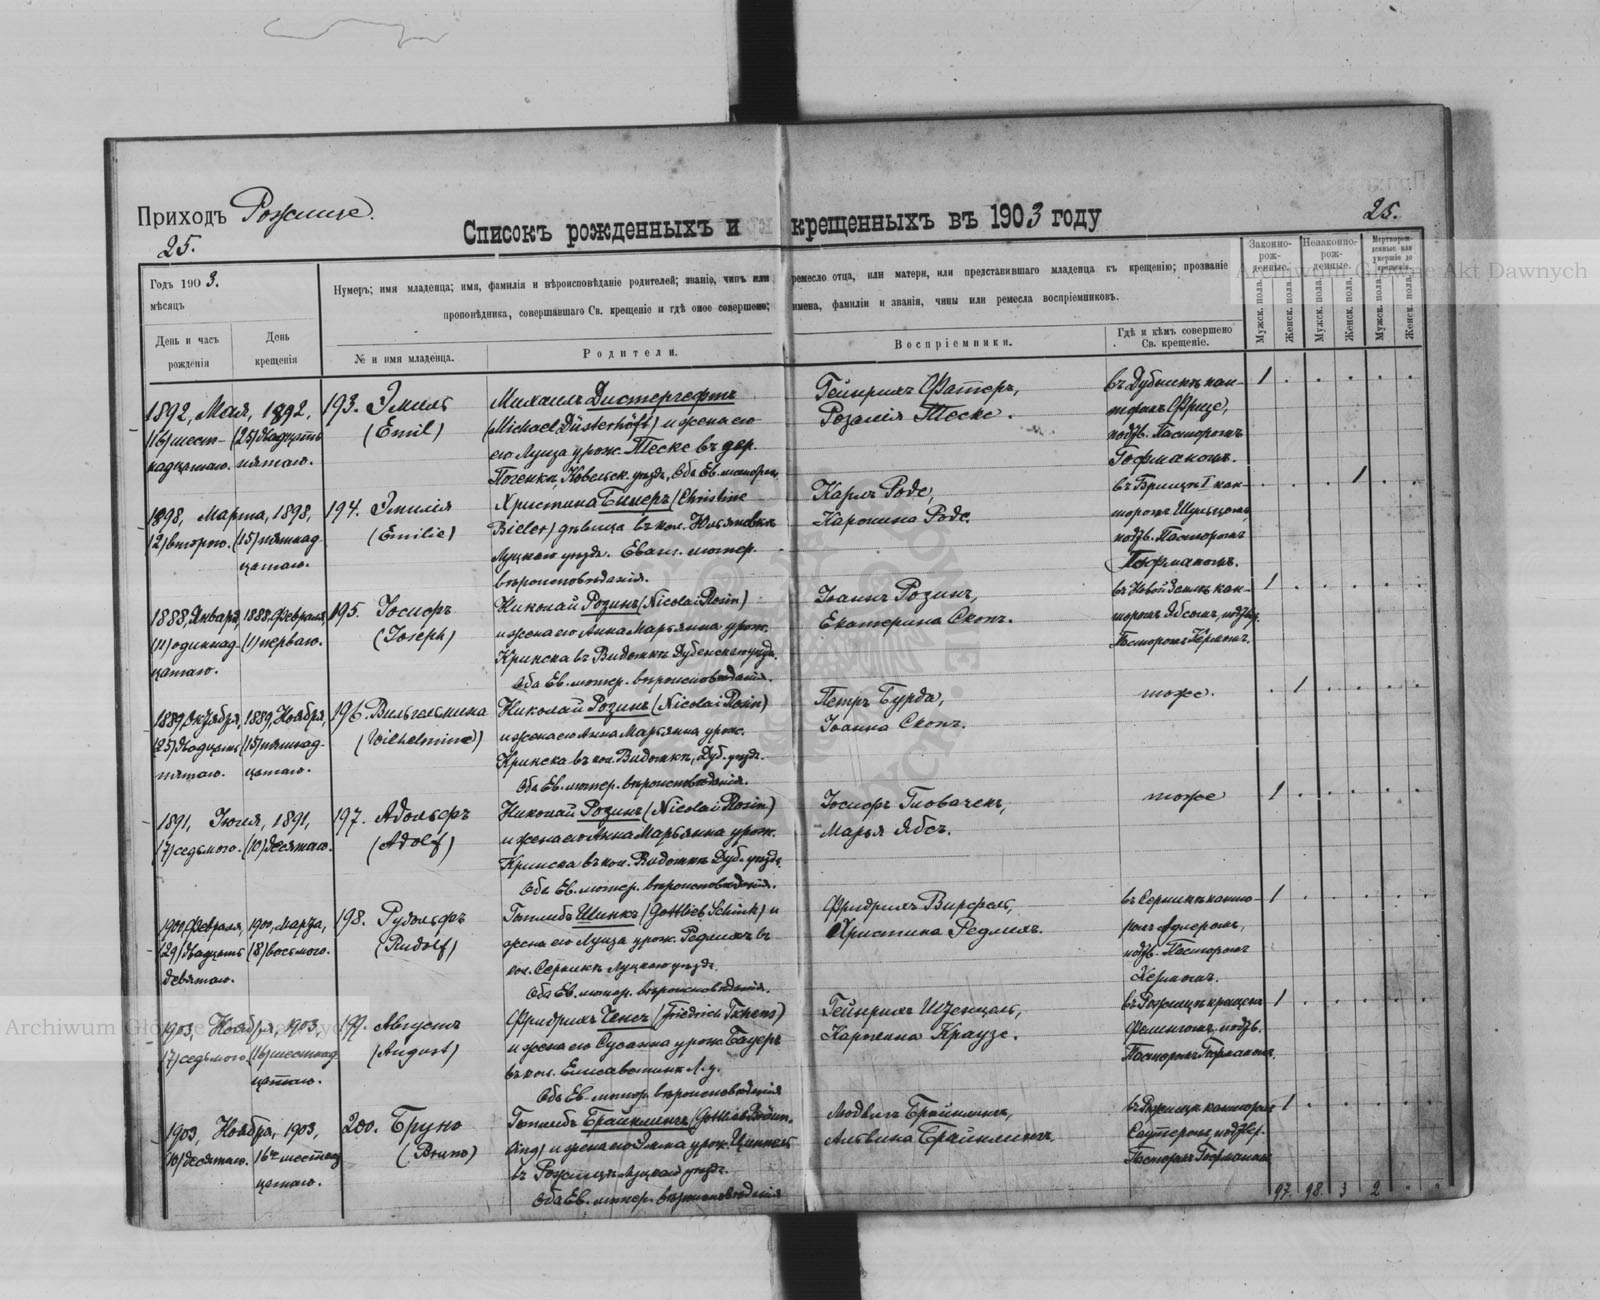 Приходъ Рожище.
25.
25.
Списокъ рожденныхъ и крещенныхъ въ 1903 году
Годъ 1903.
мѣсяцъ
День и часъ рожденія
День крещенія
Нумеръ; имя младенца; имя, фамилія и вѣроисповѣданіе родителей; званіе, чинъ или ремесло отца, или матери, или представившаго младенца къ крещенію; прозваніе
проповѣдника, совершавшаго Св. крещеніе и гдѣ оное совершено; имена, фамиліи и званія, чины или ремесла воспріемниковъ.
№ и имя младенца.
Родители.
Воспріемники.
Гдѣ и кѣмъ совершено
Св. крещеніе.
Законно-
рож-
денные.
Незаконно-
рож-
денные.
Мертворож-
денные или
умершіе до
крещенія.
Мужск. пола.
Женск. пола.
Мужск. пола.
Женск. пола.
Мужск. пола.
Женск. пола.
1892, Мая, 1892,
(16) шест-
надцатаго.
(25) двадцать
пятаго.
193. Эмиль
(Emil)
Михаилъ Дистергефтъ
(Michael Düsterhöft) и жена его
Луиза урож. Теске въ дер.
Ковельск. уѣзда, Оба Ев. лютер.
Гейнрихъ Фатеръ,
Розалія Теске.
въ Дубникѣ кан-
торомъ Фрице,
подтв. Пасторомъ
Гофманомъ.
1
1898, Марта, 1898,
(2) второго.
(15) пятнад-
цатаго.
194. Эмилія
(Emilie)
Христина Билеръ (Christine
Bieler) дѣвица въ кол. Юльяновкѣ
Луцкаго уѣзда. Еванг. лютер.
вѣроисповѣданія.
Карлъ Роде,
Каролина Роде.
въ I кан-
торомъ Шульцомъ,
подтв. Пасторомъ
Гофманомъ.
1
1888, Января, 1888, Февраля
(11) одиннад-
цатаго.
(1) перваго.
195. Іосифъ
(Joseph)
Николай Розинъ (Nicolai Rosin)
и жена его Анна Марьянна урож.
Криска въ Видоткѣ Дубенскаго уѣзда.
Оба Ев. лютер. вѣроисповѣданія.
Іоаннъ Розинъ,
Екатерина Скопъ.
въ Новой Землѣ кан-
торомъ Ябсомъ, подтв.
Пасторомъ Кёрмомъ.
1
1889, Октября, 1889, Ноября,
(25) двадцать
пятаго.
(15) пятнад-
цатаго.
196. Вильгельмина
(Wilhelmine)
Николай Розинъ (Nicolai Rosin)
и жена его Анна Марьянна урож.
Криска въ кол. Видоткѣ, Дуб. уѣзда.
Оба Ев. лютер. вѣроисповѣданія.
Петръ Бурда,
Іоанна Скопъ.
тоже.
1
1891, Іюля, 1891,
(7) седьмого.
(10) десятаго.
197. Адольфъ
(Adolf)
Николай Розинъ (Nicolai Rosin)
и жена его Анна Марьянна урож.
Криска въ кол. Видоткѣ Дуб. уѣзда
Оба Ев. лютер. вѣроисповѣданія.
Іосифъ Гловачекъ,
Марья Ябсъ.
тоже
1
1900, Февраля, 1900, Марта,
(29) двадцать
девятаго.
(8) восьмого.
198. Рудольфъ
(Rudolf)
Готлибъ Шинкъ (Gottlieb Schink) и
жена его Луиза урож. Редлихъ въ
кол. Серникѣ Луцкаго уѣзда.
Оба Ев. лютер. вѣроисповѣданія.
Фридрихъ Вирфель,
Христина Редлихъ.
въ Серникѣ канто-
ромъ Адлеромъ,
подтв. Пасторомъ
Кёрмомъ.
1
1903, Ноября, 1903,
(7) седьмого.
(16) шестнад-
цатаго.
199. Августъ
(August)
Фридрихъ Ченсъ (Friedrich Tschens)
и жена его Сусанна урож. Бауеръ
въ кол. Елисаветинѣ Л. у.
Оба Ев. лютер. вѣроисповѣданія
Гейнрихъ Штенцель,
Каролина Краузе.
въ Рожищѣ крещенъ
подтв.
Пасторомъ Гофманомъ.
1
1903, Ноября, 1903,
(10) десятаго.
16го шестнад-
цатаго.
200. Бруно
(Bruno)
Готлибъ Брайклингъ (Gottlieb Bräunling)
и жена его Эмма урож. Циммель
въ Рожищѣ Луцкаго уѣзда.
Оба Ев. лютер. вѣроисповѣданія
Людвигъ Брайклингъ,
Альвина Брайклингъ.
въ Рожищѣ канторомъ
Саутеромъ, подтвер.
Пасторомъ Гофманомъ
1
97. 98. 3 2
Archiwum Główne Akt Dawnych
Archiwum Główne Akt Dawnych